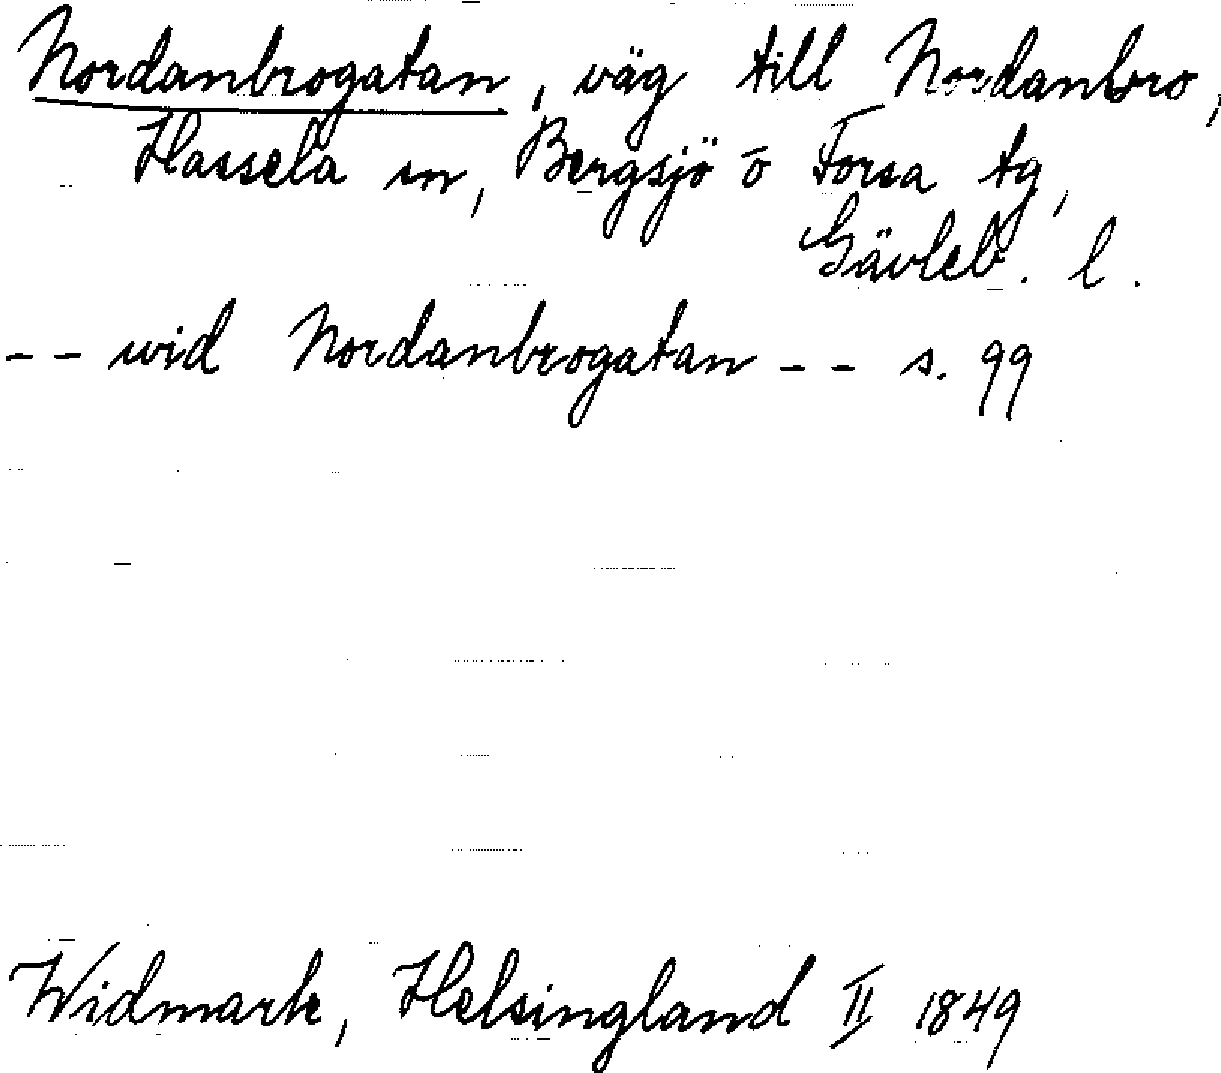 Nordanbrogatan, väg till Nordanbro,
Hassela sn, Bergsjö o Forsa tg,
Gävleb. l.
-- wid Nordanbrogatan -- s. 99
Widmark, Helsingland II 1849